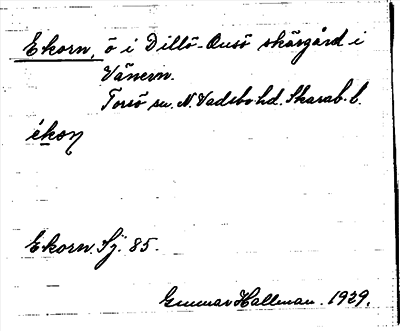 Ekorn, ö i Dillö-Onsö skärgård i
Vänern.
Torsö sn. N. Vadsbo hd. Skarab. l.
ékoɳ
Ekorn. Sj. 85.
Gunnar Hallman. 1929.